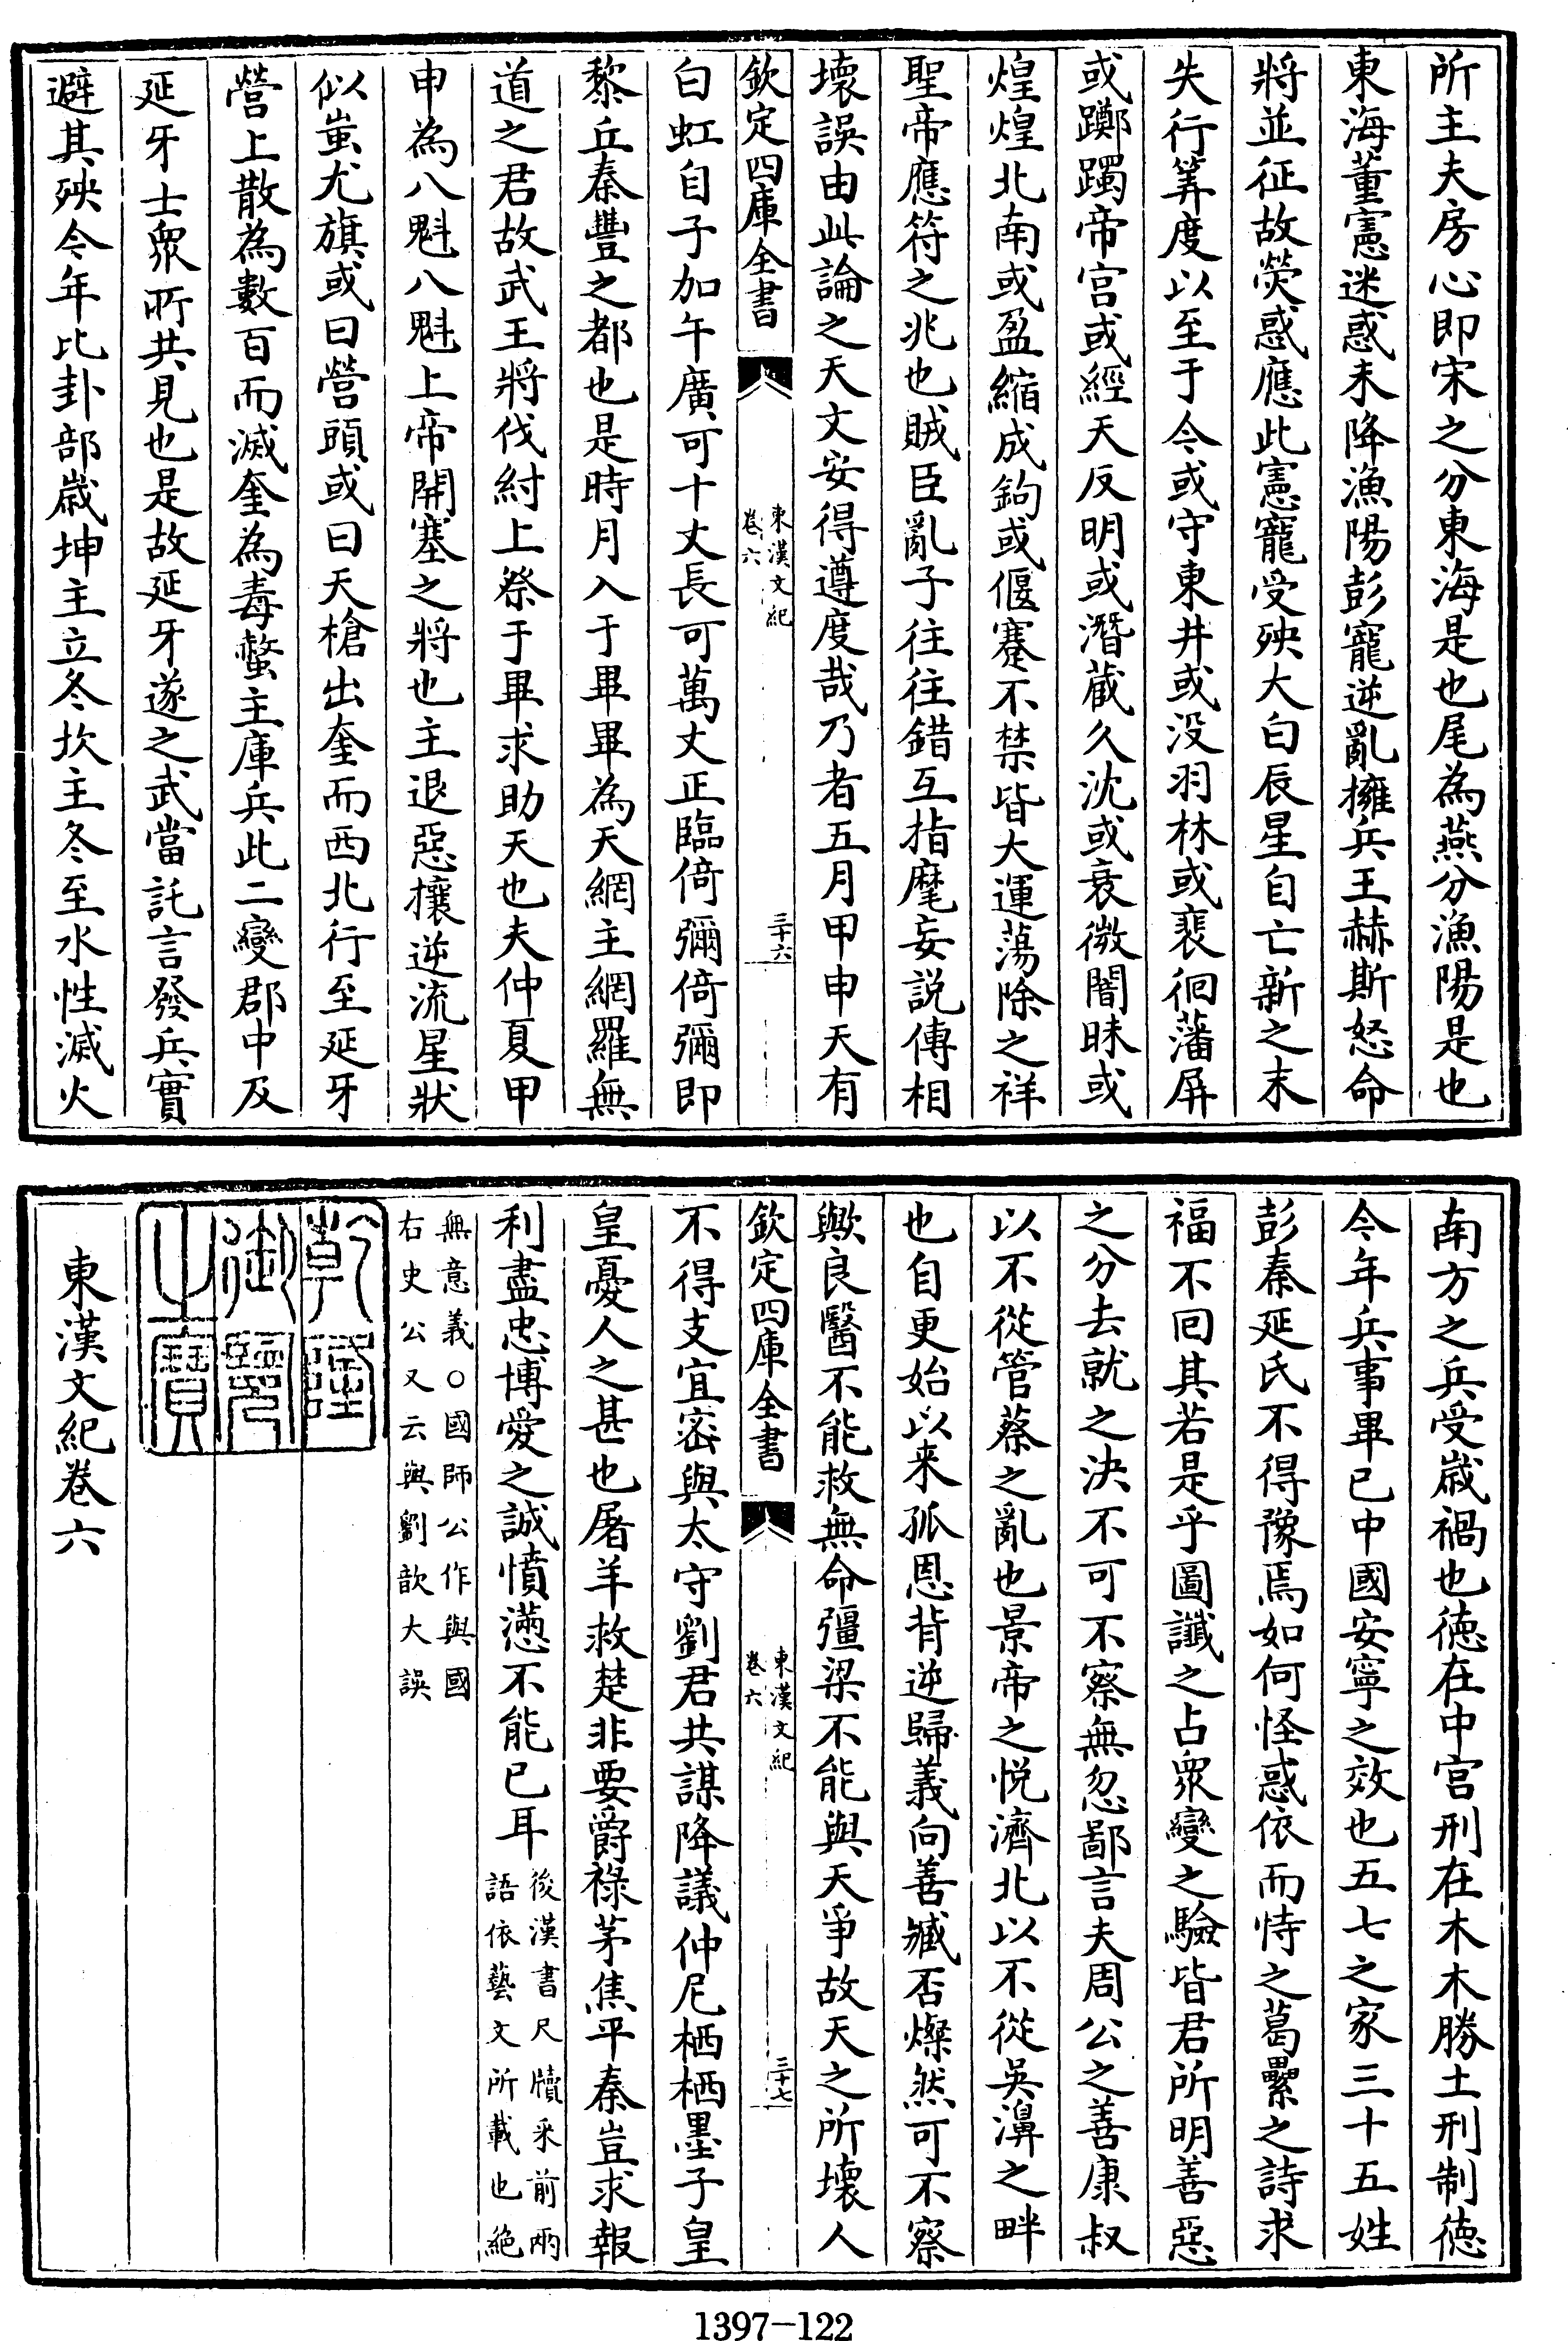 所主夫房心即宋之分東海是也尾為燕分漁陽是也
東海董憲迷惑未降漁陽彭寵逆亂擁兵王赫斯怒命
將並征故熒惑應此憲寵受殃大白辰星自亡新之末
失行筭度以至于今或守東井或没羽林或裴徊藩屏
或躑躅帝宫或經天反明或潛蔵久沈或衰微闇昧或
煌煌北南或盈縮成鉤或偃蹇不禁皆大運蕩除之祥
聖帝應符之兆也賊臣亂子往往錯互指麾妄説傳相
壊誤由此論之天文安得遵度哉乃者五月甲申天有
欽定四庫全書
東漢文紀
卷六
三十六
白虹自子加午廣可十丈長可萬丈正臨倚彌倚彌即
黎丘秦豐之都也是時月入于畢畢為天網主網羅無
道之君故武王將伐紂上祭于畢求助天也夫仲夏甲
申為八魁八魁上帝開塞之將也主退惡攘逆流星狀
似蚩尤旗或曰營頭或曰天槍出奎而西北行至延牙
營上散為數百而滅奎為毒螫主庫兵此二變郡中及
延牙士衆所共見也是故延牙遂之武當託言發兵實
避其殃今年比卦部歲坤主立冬坎主冬至水性滅火
南方之兵受歲禍也徳在中宫刑在木木勝土刑制徳
今年兵事畢已中國安寧之效也五七之家三十五姓
彭秦延氏不得豫焉如何怪惑依而恃之葛纍之詩求
福不回其若是乎圖讖之占衆變之驗皆君所明善惡
之分去就之決不可不察無忽鄙言夫周公之善康叔
以不從管蔡之亂也景帝之悦濟北以不從吳濞之畔
也自更始以来孤恩背逆歸義向善臧否燦然可不察
歟良醫不能救無命彊梁不能與天爭故天之所壊人
欽定四庫全書
東漢文紀
卷六
三十七
不得支宜密與太守劉君共謀降議仲尼栖栖墨子皇
皇憂人之甚也屠羊救楚非要爵祿茅焦平秦豈求報
利盡忠博愛之誠憤懣不能已耳
後漢書尺牘采前兩
語依藝文所載也絶
無意義○國師公作與國
右史公又云與劉歆大誤
乾隆
御覽
之寶
東漢文紀卷六
1397-122